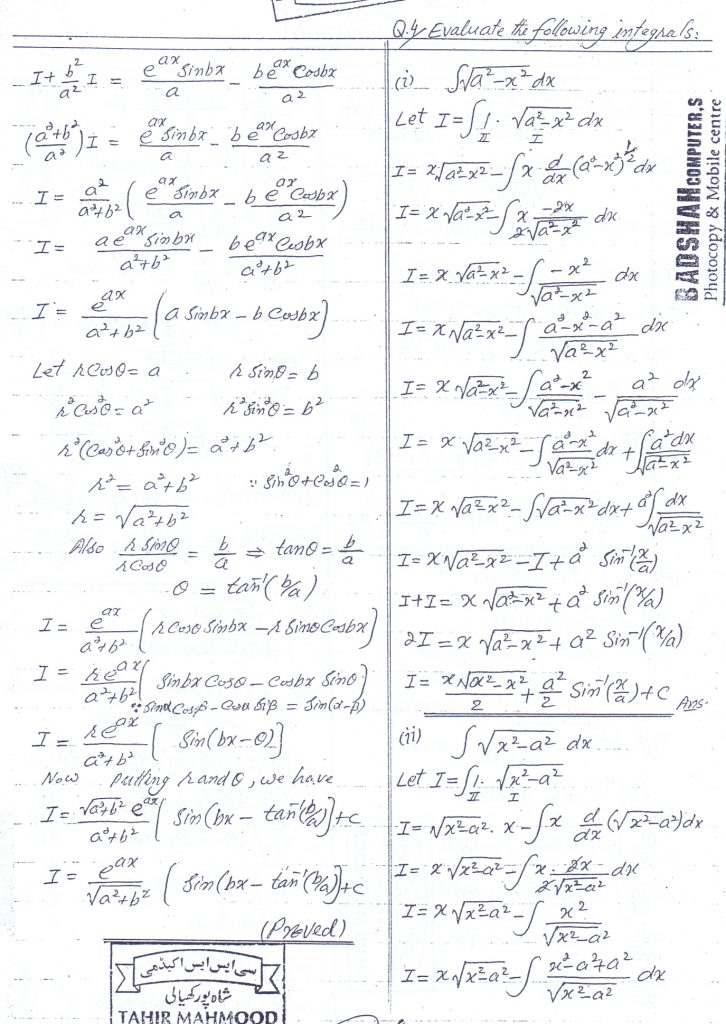 I + b²/a² I = e^ax Sinbx/a − b e^ax Cosbx/a²
((a²+b²)/a²) I = e^ax Sinbx/a − b e^ax Cosbx/a²
I = a²/(a²+b²) ( e^ax Sinbx/a − b e^ax Cosbx/a² )
I = a e^ax Sinbx/(a²+b²) − b e^ax Cosbx/(a²+b²)
I = e^ax/(a²+b²) [ a Sinbx − b Cosbx ]
Let rCosθ = a    r Sinθ = b
r²Cos²θ = a²    r²Sin²θ = b²
r²(Cos²θ + Sin²θ) = a² + b²
r² = a² + b²    ∵ Sin²θ + Cos²θ = 1
r = √(a²+b²)
Also r Sinθ/r Cosθ = b/a ⇒ tanθ = b/a
θ = tan⁻¹(b/a)
I = e^ax/(a²+b²) [ r Cosθ Sinbx − r Sinθ Cosbx ]
I = r e^ax/(a²+b²) [ Sinbx Cosθ − Cosbx Sinθ ]
∵ Sinα Cosβ − Cosα Siβ = Sin(α−β)
I = r e^ax/(a²+b²) [ Sin(bx − θ) ]
Now putting r and θ, we have
I = √(a²+b²) e^ax/(a²+b²) [ Sin(bx − tan⁻¹(b/a) ] + c
I = e^ax/√(a²+b²) [ Sin(bx − tan⁻¹(b/a) ] + c
(Proved)
سی ایس ایس اکیڈمی
شاہ پور کھیالی
TAHIR MAHMOOD
Q.4 Evaluate the following integrals:
(i) ∫√(a²−x²) dx
Let I = ∫ 1 · √(a²−x²) dx
II I
I = x√(a²−x²) − ∫ x · d/dx (a²−x²)^1/2 dx
I = x √(a²−x²) − ∫ x −2x/2√(a²−x²) dx
I = x √(a²−x²) − ∫ −x²/√(a²−x²) dx
I = x √(a²−x²) − ∫ (a²−x²−a²)/√(a²−x²) dx
I = x √(a²−x²) − ∫ (a²−x²)/√(a²−x²) − a²/√(a²−x²) dx
I = x √(a²−x²) − ∫ (a²−x²)/√(a²−x²) dx + ∫ a² dx/√(a²−x²)
I = x √(a²−x²) − ∫√(a²−x²) dx + a² ∫ dx/√(a²−x²)
I = x √(a²−x²) − I + a² Sin⁻¹(x/a)
I + I = x √(a²−x²) + a² Sin⁻¹(x/a)
2I = x √(a²−x²) + a² Sin⁻¹(x/a)
I = x √(a²−x²)/2 + a²/2 Sin⁻¹(x/a) + c Ans.
(ii) ∫ √(x²−a²) dx
Let I = ∫ 1 · √(x²−a²)
II I
I = √(x²−a²) · x − ∫ x d/dx (√(x²−a²) dx
I = x √(x²−a²) − ∫ x · 2x/2√(x²−a²) dx
I = x √(x²−a²) − ∫ x²/√(x²−a²)
I = x √(x²−a²) − ∫ (x²−a²+a²)/√(x²−a²) dx
BADSHAH COMPUTER,S
Photocopy & Mobile centre